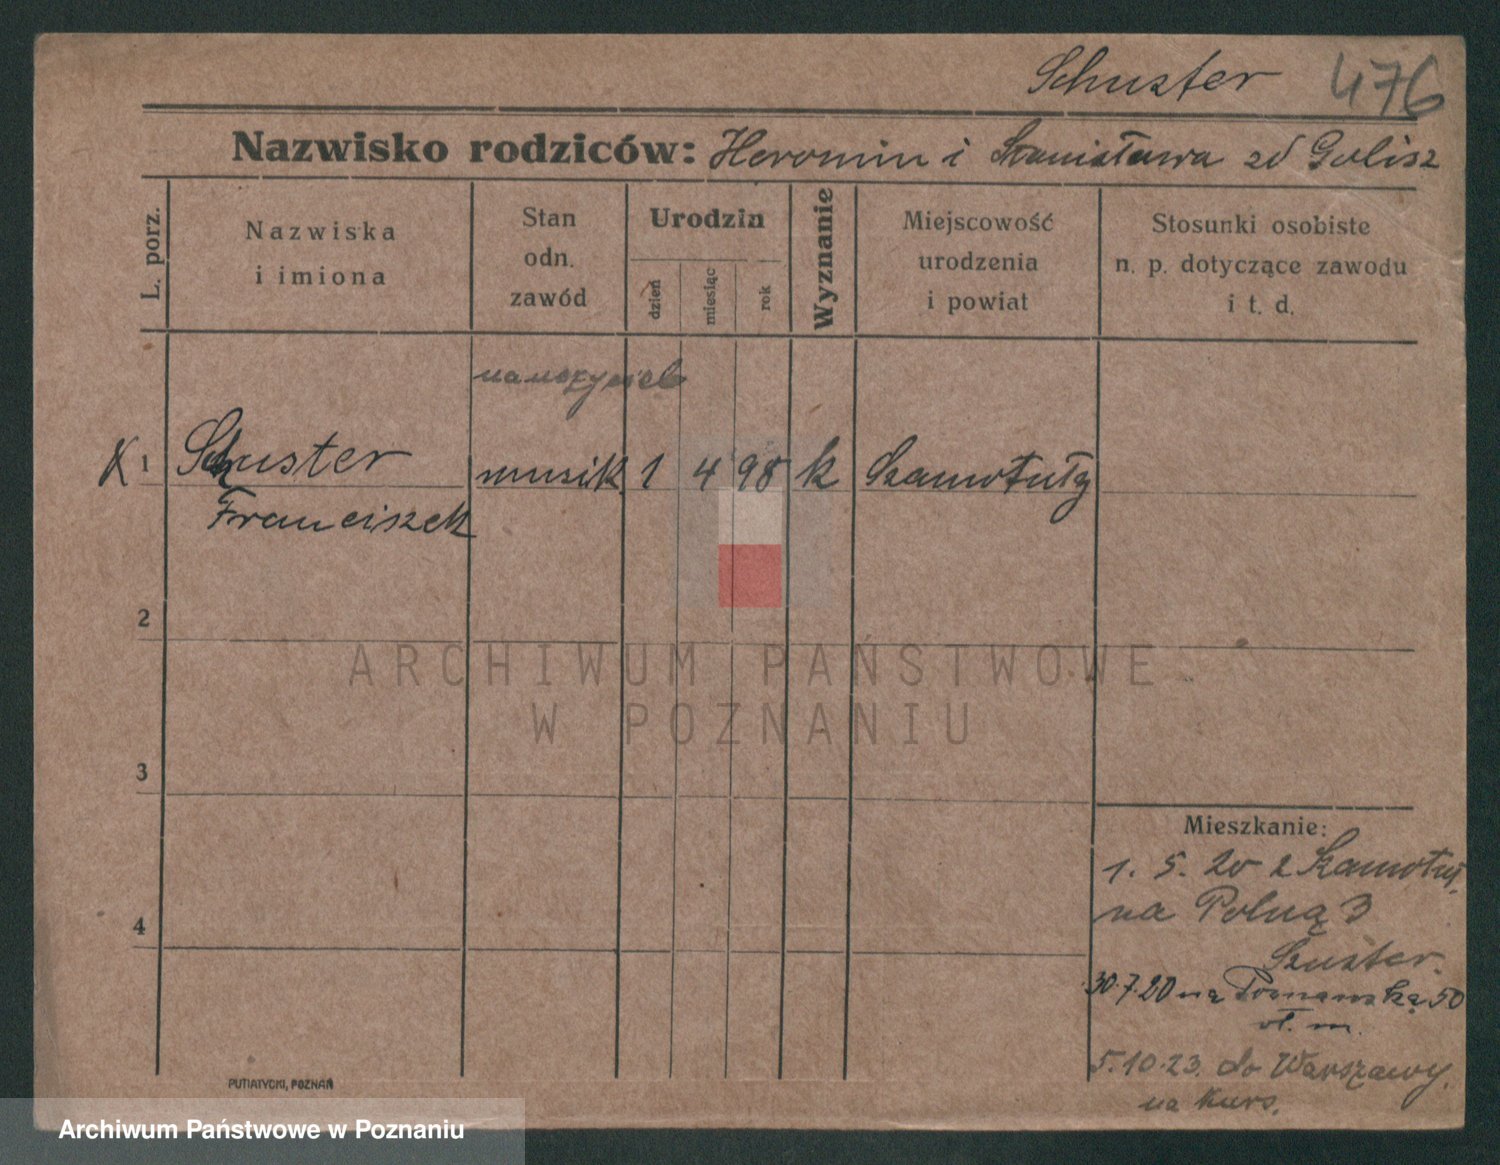 Schuster 476
Nazwisko rodziców: Heromin i Stanisława zd Golisz
L. porz.
Nazwiska
i imiona
Stan
odn.
zawód
Urodzin
dzień
miesiąc
rok
Wyznanie
Miejscowość
urodzenia
i powiat
Stosunki osobiste
n. p. dotyczące zawodu
i t. d.
nauczyciel
K 1 Schuster musik 1 4 98 k Szamotuły
Franciszek
2
ARCHIWUM PAŃSTWOWE
W POZNANIU
3
Mieszkanie:
1. 5. 20 z Szamotuł
na Polną 3
4
Szuster.
30.7.20 na Poznańską 50
5.10.23. do Warszawy.
na kurs.
PUTIATYCKI, POZNAŃ
Archiwum Państwowe w Poznaniu